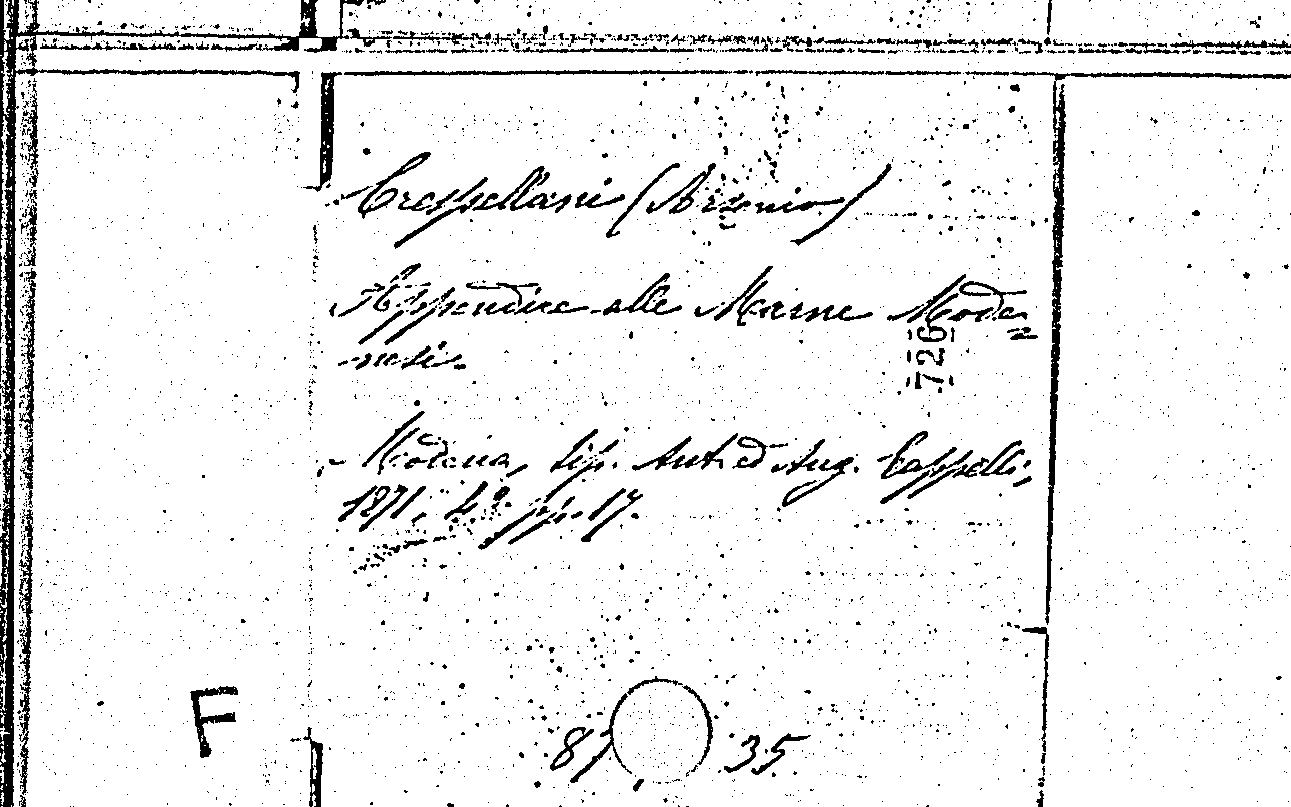 Crespellani (Arsenio)
Appendice alle Marne Mode=
nesi.
726
Modena, tip. Ant. ed Aug. Cappelli,
1871, 4º pp. 17.
F
87 35